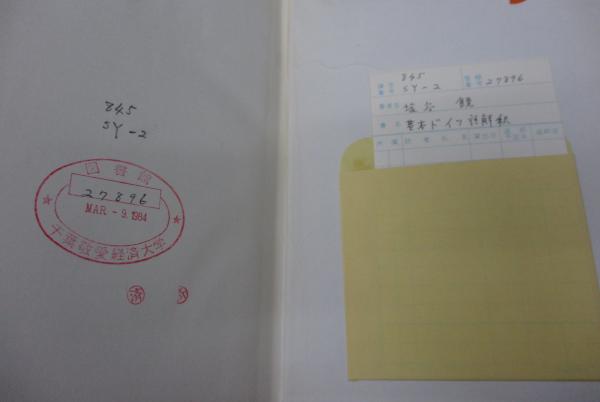 845
SY-2
図書館
27896
MAR - 9. 1984
千葉敬愛経済大学
済
済
845
SY-2
27896
著者名 塩谷 饒
書名 基本ドイツ語解釈